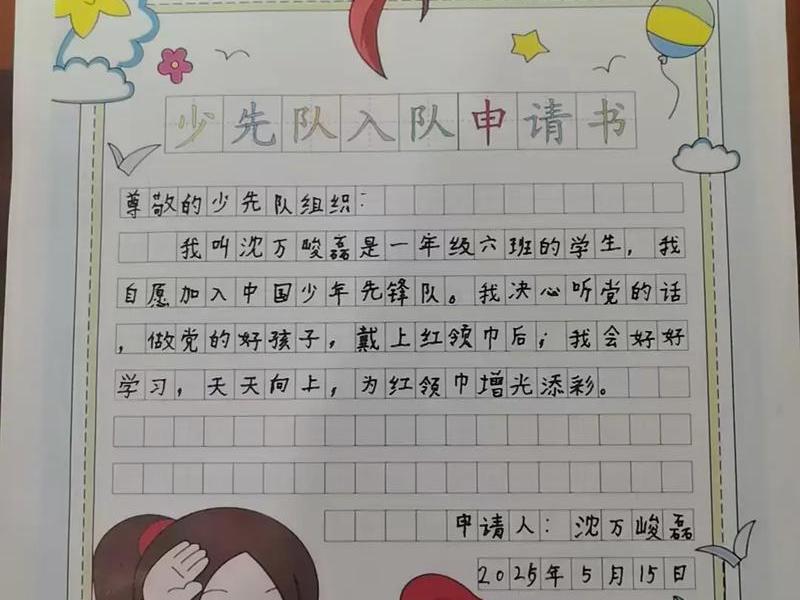 少先队入队申请书
尊敬的少先队组织：
我叫沈万峻磊是一年级六班的学生，我
自愿加入中国少年先锋队。我决心听党的话
，做党的好孩子，戴上红领巾后；我会好好
学习，天天向上，为红领巾增光添彩。
申请人：沈万峻磊
2025年5月15日